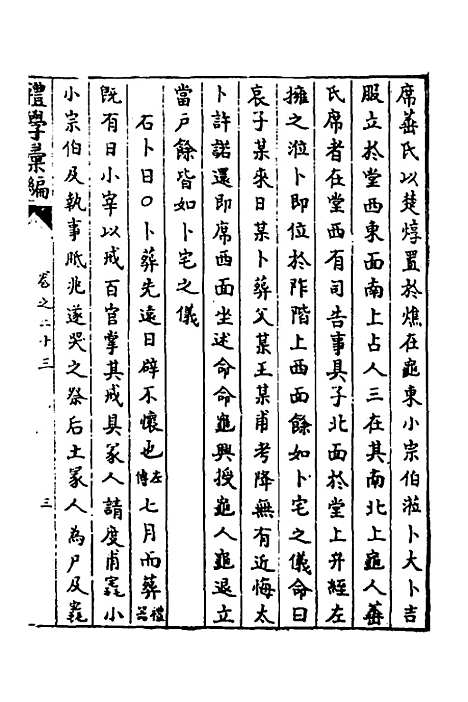 席菙氏以楚焞置於燋在龜東小宗伯涖卜大卜吉
服立於堂西東面南上占人三在其南北上龜人菙
氏席者在堂西有司告事具子北面於堂上升絰左
擁之涖卜即位於阼階上西面餘如卜宅之儀命曰
哀子某來日某卜葬父某王某甫考降無有近悔太
卜許諾還即席西面坐述命命龜興授龜人龜退立
當戶餘皆如卜宅之儀
石卜日○卜葬先遠日辟不懷也左傳七月而葬禮器
既有日小宰以戒百官掌其戒具冢人請度甫竁小
小宗伯及執事眡兆遂哭之祭后土冢人為尸及竁
禮學彙編 卷之二十三 三